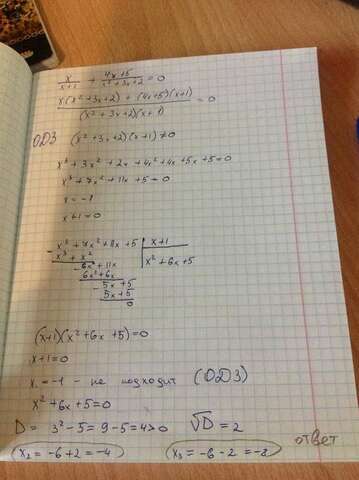 x/(x+1) + (4x+5)/(x²+3x+2) = 0
(x(x²+3x+2) + (4x+5)(x+1))/((x²+3x+2)(x+1)) = 0
ОДЗ (x²+3x+2)(x+1) ≠ 0
x³ + 3x² + 2x + 4x² + 4x + 5x + 5 = 0
x³ + 7x² + 11x + 5 = 0
x = -1
x+1 = 0
- x³ + 7x² + 11x + 5 | x+1
x³ + x² | x² + 6x + 5
- 6x² + 11x
6x² + 6x
- 5x + 5
5x + 5
0
(x+1)(x² + 6x + 5) = 0
x+1 = 0
x = -1 - не подходит (ОДЗ)
x² + 6x + 5 = 0
D = 3² - 5 = 9 - 5 = 4 > 0 √D = 2
x₂ = -6 + 2 = -4 x₃ = -6 - 2 = -8 ответ